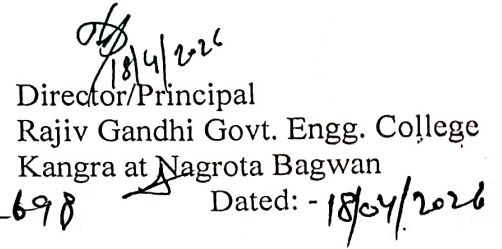 18/4/2026
Director/Principal
Rajiv Gandhi Govt. Engg. College
Kangra at Nagrota Bagwan
-698 Dated: - 18/04/2026